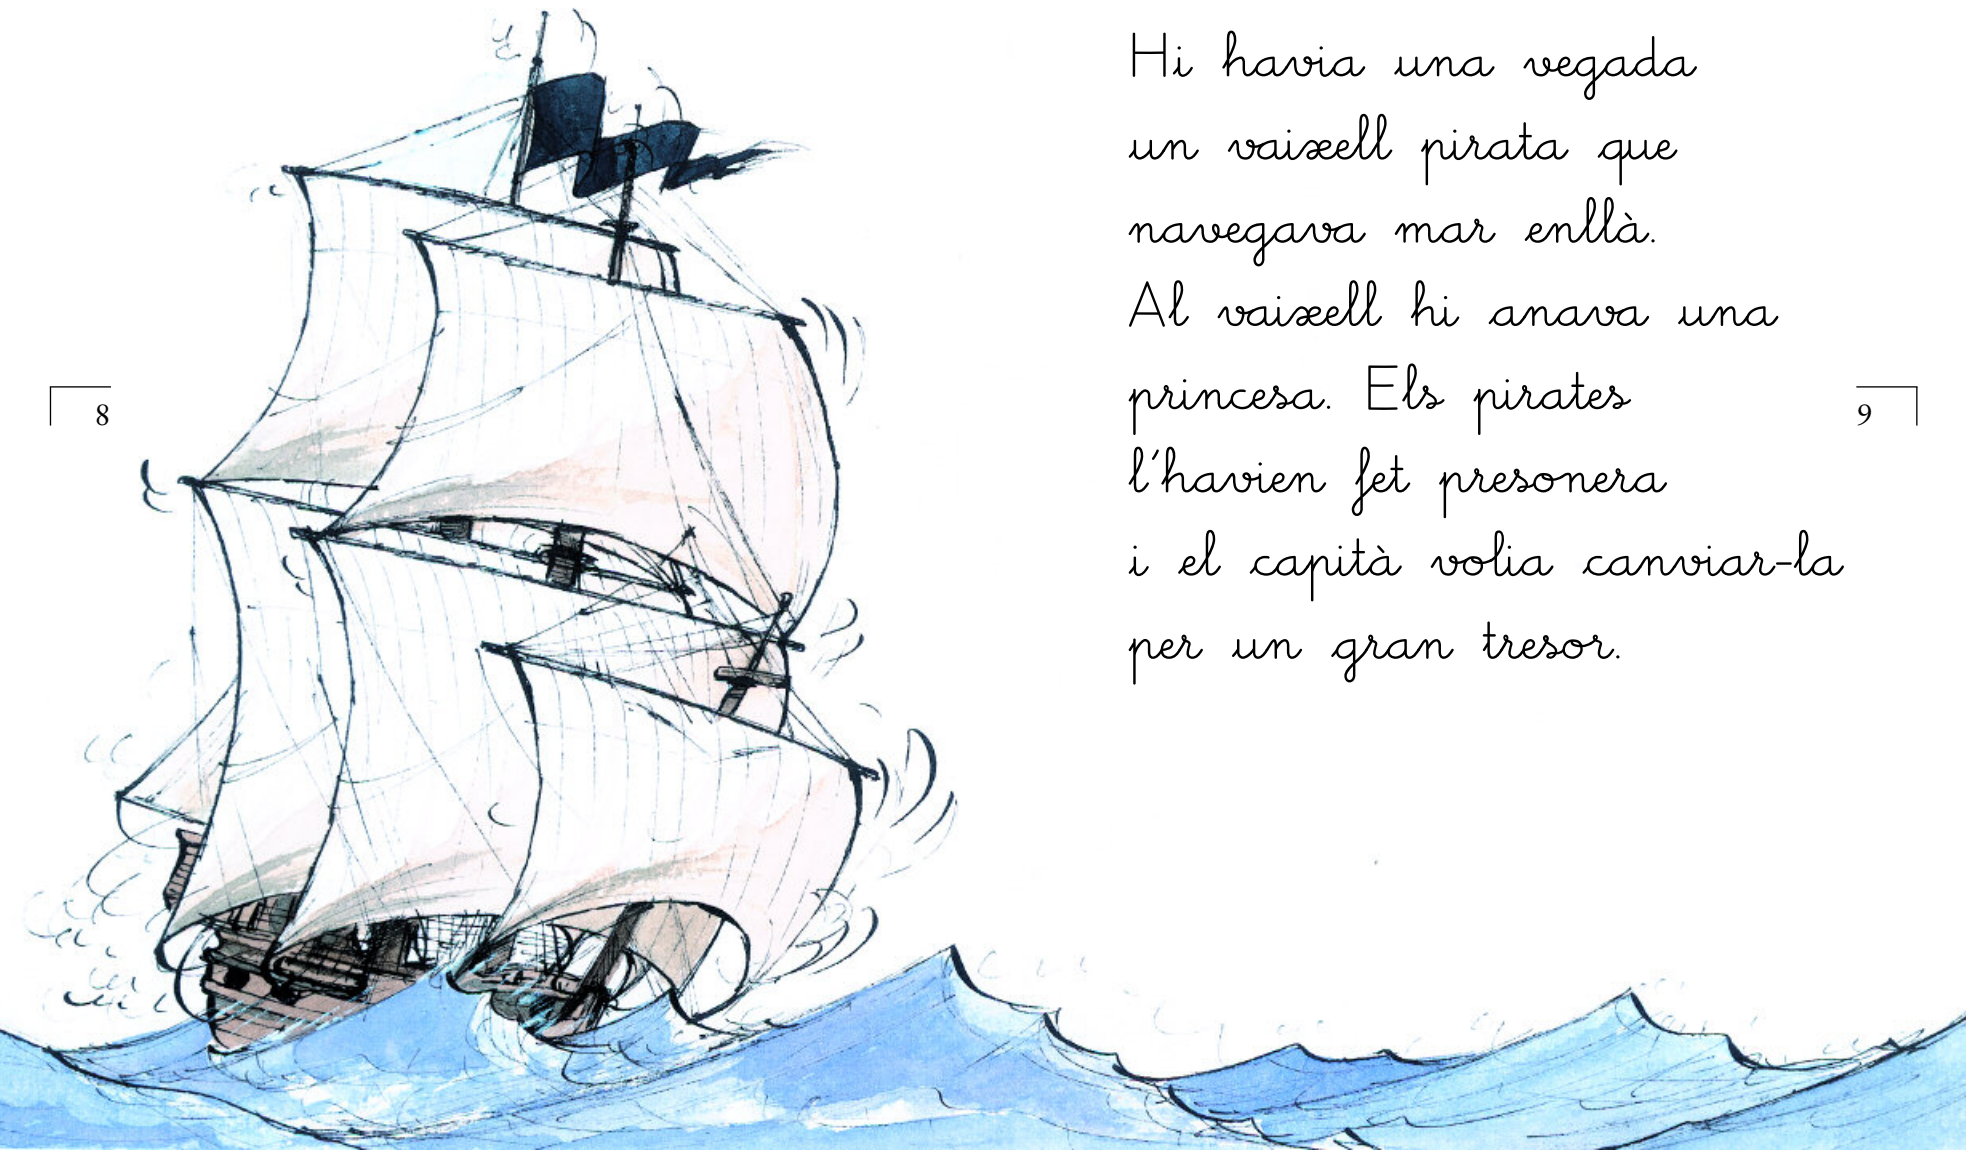 Hi havia una vegada
un vaixell pirata que
navegava mar enllà.
Al vaixell hi anava una
princesa. Els pirates
l'havien fet presonera
i el capità volia canviar-la
per un gran tresor.
8
9